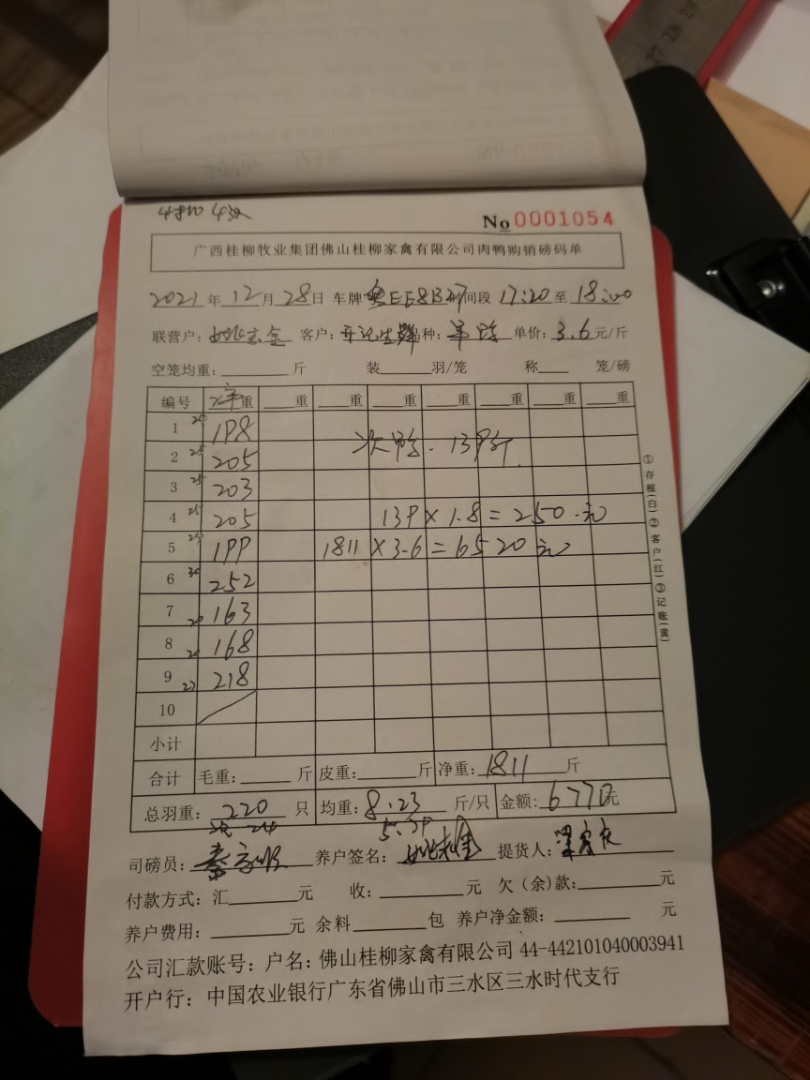 No 0001054
广西桂柳牧业集团佛山桂柳家禽有限公司肉鸭购销磅码单
2021年12月28日 车牌 时间段 17:20 至 18:00
联营户: 客户: 品种: 单价:3.6元/斤
空笼均重: 斤 装 羽/笼 称 笼/磅
编号 重 重 重 重 重 重 重 重
1 198
2 25 205 次鸭. 139斤
3 25 203
4 25 205 139×1.8=250.元
5 25 199 1811×3.6=6520元
6 30 252
7 20 163
8 20 168
9 27 218
10
小计
合计 毛重: 斤 皮重: 斤 净重:1811斤
总羽重:220只 均重:8.23斤/只 金额:6770元
次 24 5.79
司磅员: 养户签名: 提货人:
付款方式:汇 元 收: 元 欠(余)款: 元
养户费用: 元 余料 包 养户净金额: 元
公司汇款账号:户名:佛山桂柳家禽有限公司 44-442101040003941
开户行:中国农业银行广东省佛山市三水区三水时代支行
①存根(白)②客户(红)③记账(黄)